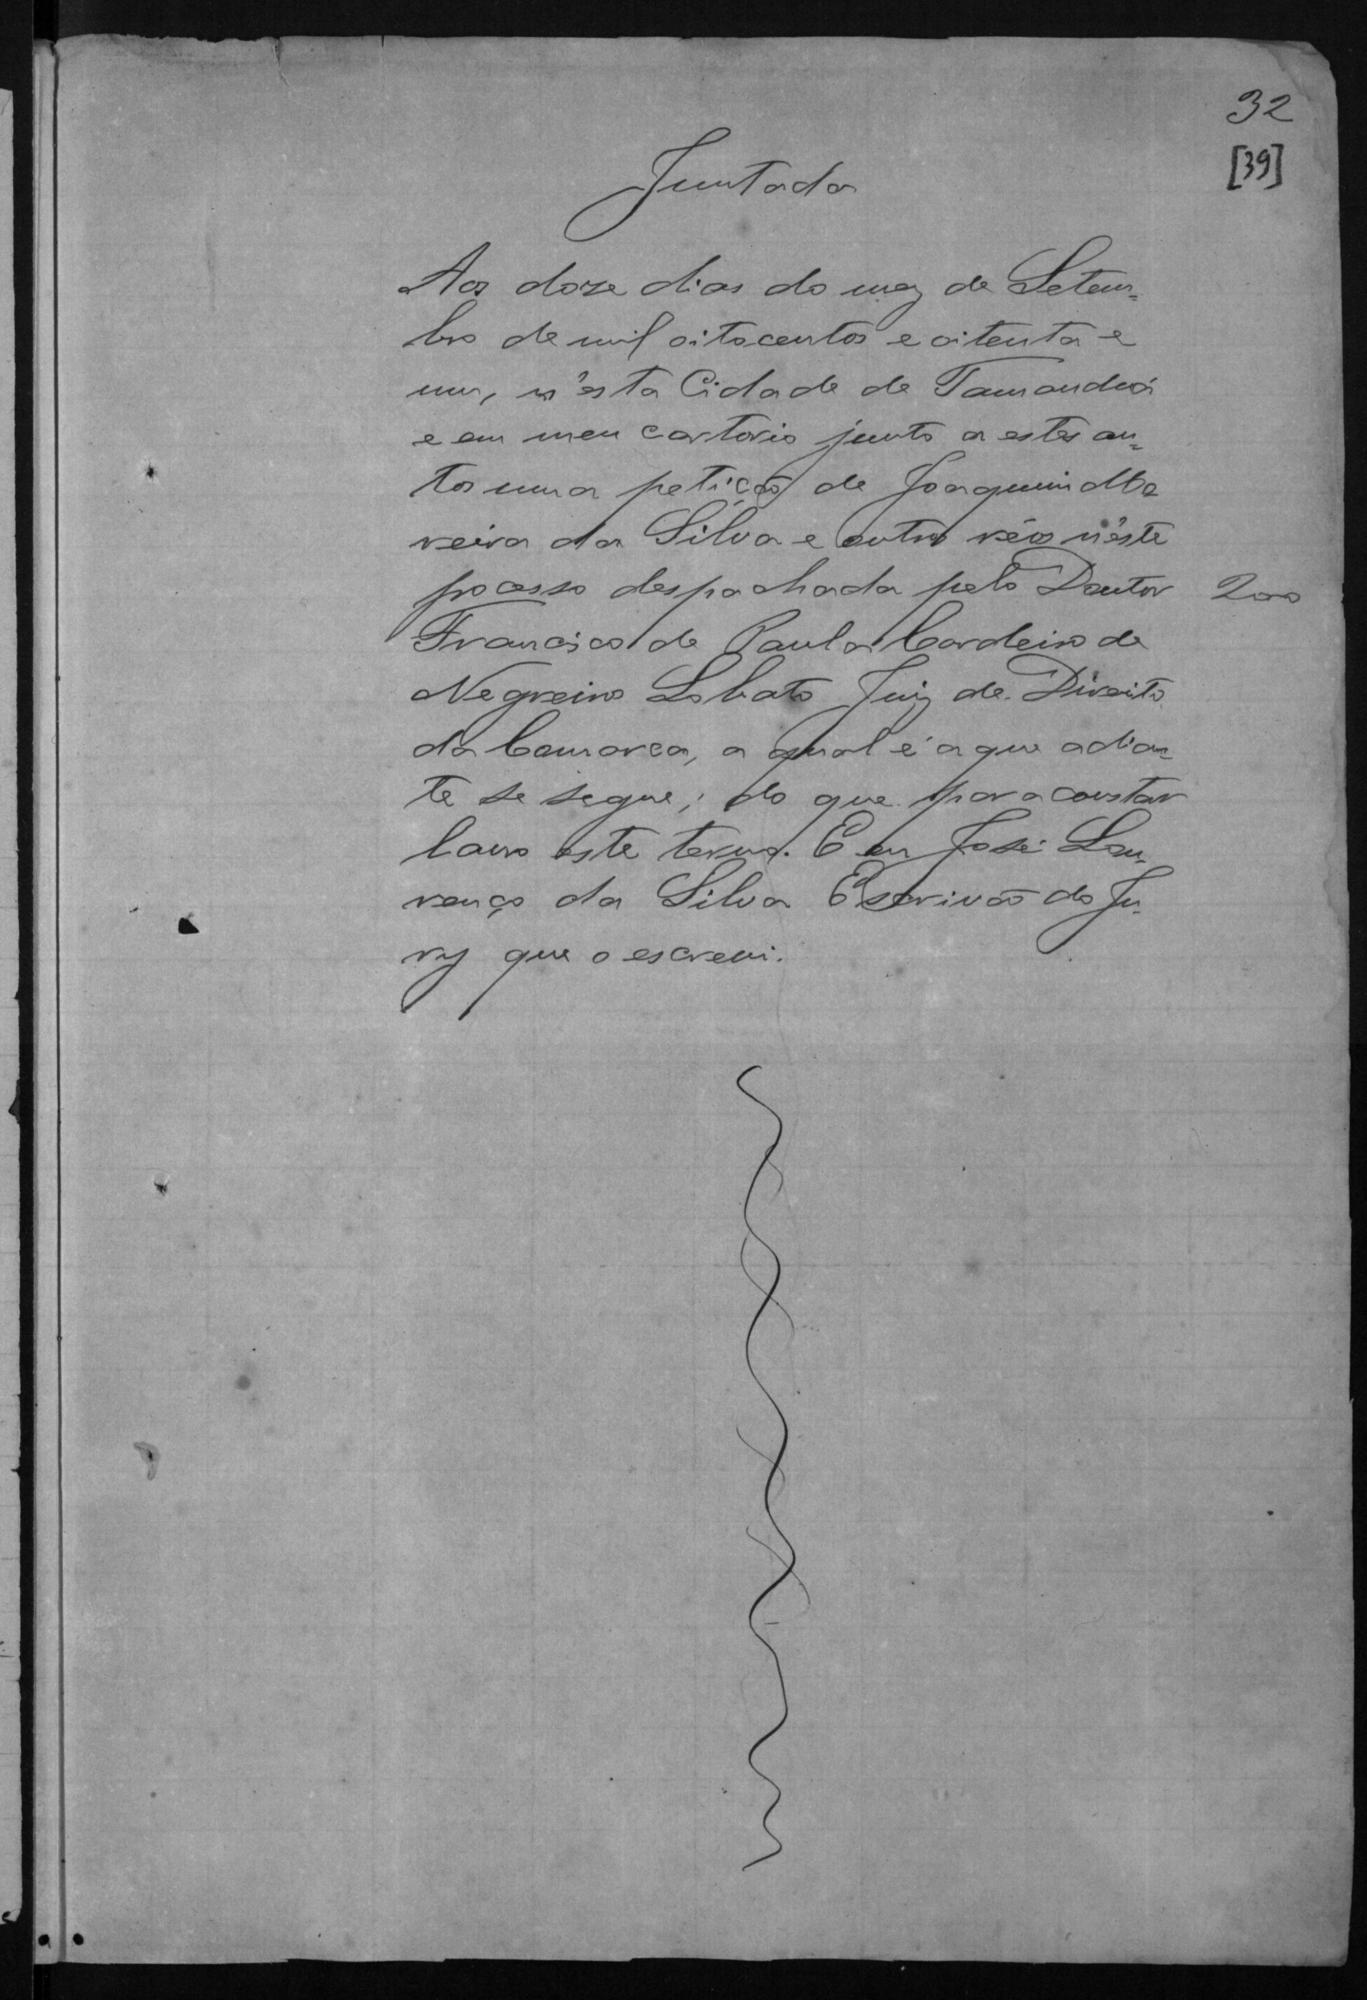 32
[39]
Juntada
Aos doze dias do mez de Setem=
bro de mil oitocentos e oitenta e
um, n'esta Cidade de Tamanduá
e em meu cartorio junto a estes au=
tos uma petição de Joaquim Mo
reira da Silva e outro réos n'este
processo despachada pelo Doutor 200
Francisco de Paula Cordeiro de
Negreiros Lobato Juiz de Direito
da Comarca, a qual é a que adian=
te se segue; do que para constar
lavro este termo. E eu José Lou=
renço da Silva Escrivão do Ju=
ry que o escrevi.